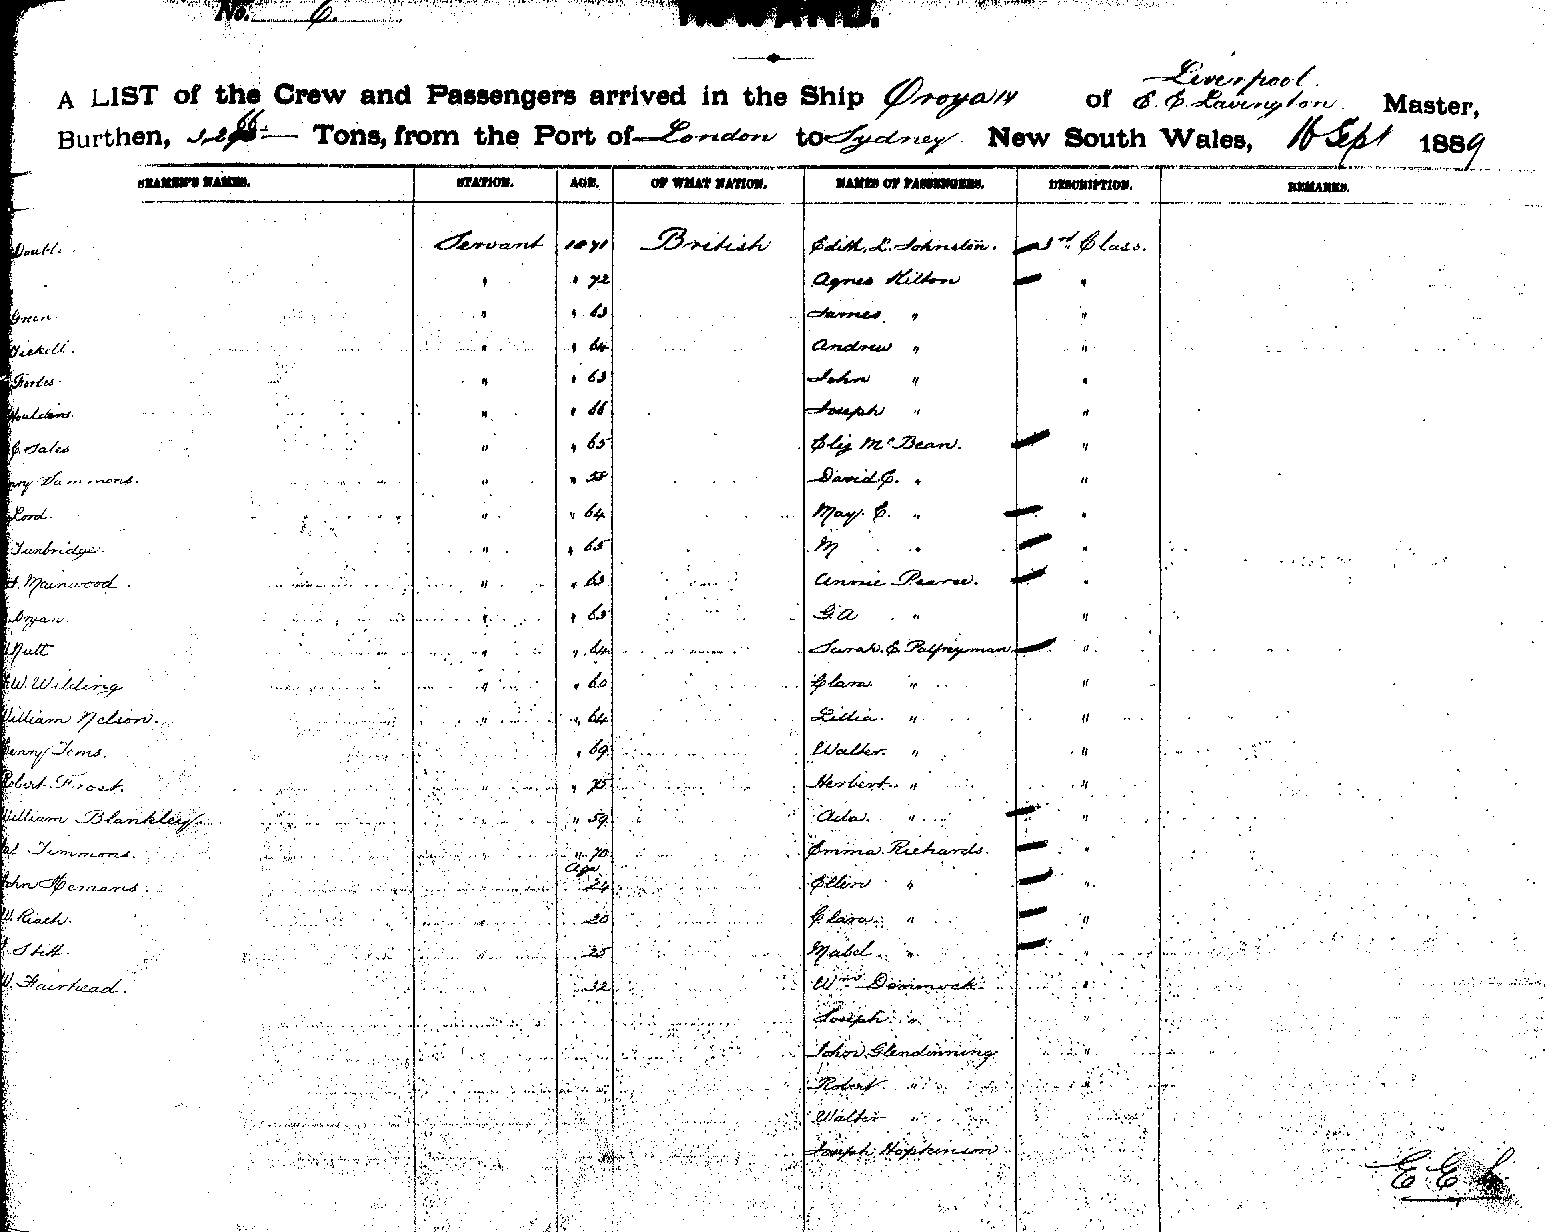 No. 6.
INWARD.
A LIST of the Crew and Passengers arrived in the Ship Oroya of Liverpool E. E. Lavington Master,
Burthen, Tons, from the Port of London to Sydney New South Wales, 16 Sept 1889
SEAMEN'S NAMES. STATION. AGE. OF WHAT NATION. NAMES OF PASSENGERS. DESCRIPTION. REMARKS.
Servant 1871 British Edith. L. Johnston. 3rd Class.
" " 72 Agnes Hilton "
Green " " 63 James " "
" " 64 Andrew " "
" " 63 John " "
" " 66 Joseph " "
Sales " " 65 Eliz McBean. "
Sammons. " " 58 David C. " "
Lord. " " 64 May. E. " "
Tunbridge. " " 65 M " "
Mainwood. " " 63 Annie Pearce. "
" " 63 G. A " "
Nutt " " 64 Sarah. E Palfreyman "
W. Wilding " " 60 Clara " "
William Nelson. " " 64 Lillia. " "
Henry Toms. " 69 Walter. " "
Robert Frost. " " 75 Herbert " "
William Blankley. " 59 Ada. " "
Timmons. " 70 Emma Richards. "
John Hemans. Age 24 Ellen " "
W. Riach. " 20 Clara " "
Stitt. 25 Mabel " "
W. Fairhead. 32 Wm Dimmock "
Joseph " "
John Glendinning "
Robert " "
Walter "
Joseph Hopkinson
E E L